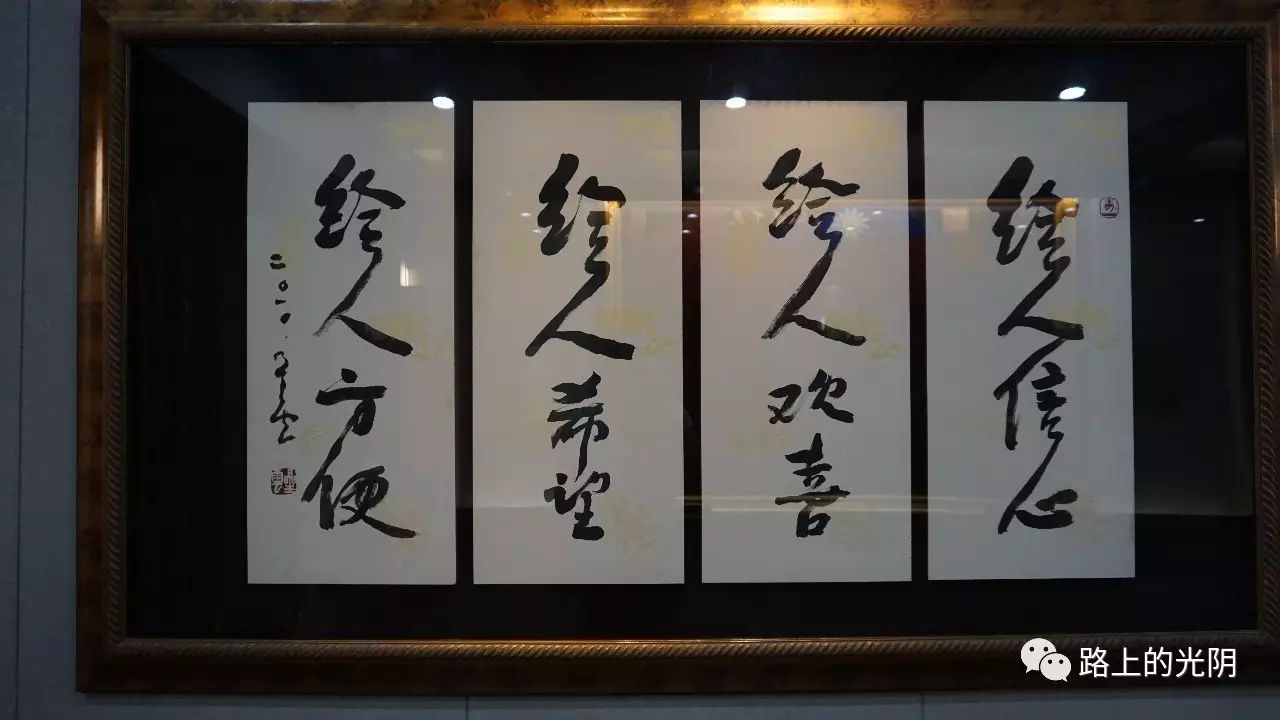 给人信心
给人欢喜
给人希望
给人方便
二〇一〇.星云
路上的光阴